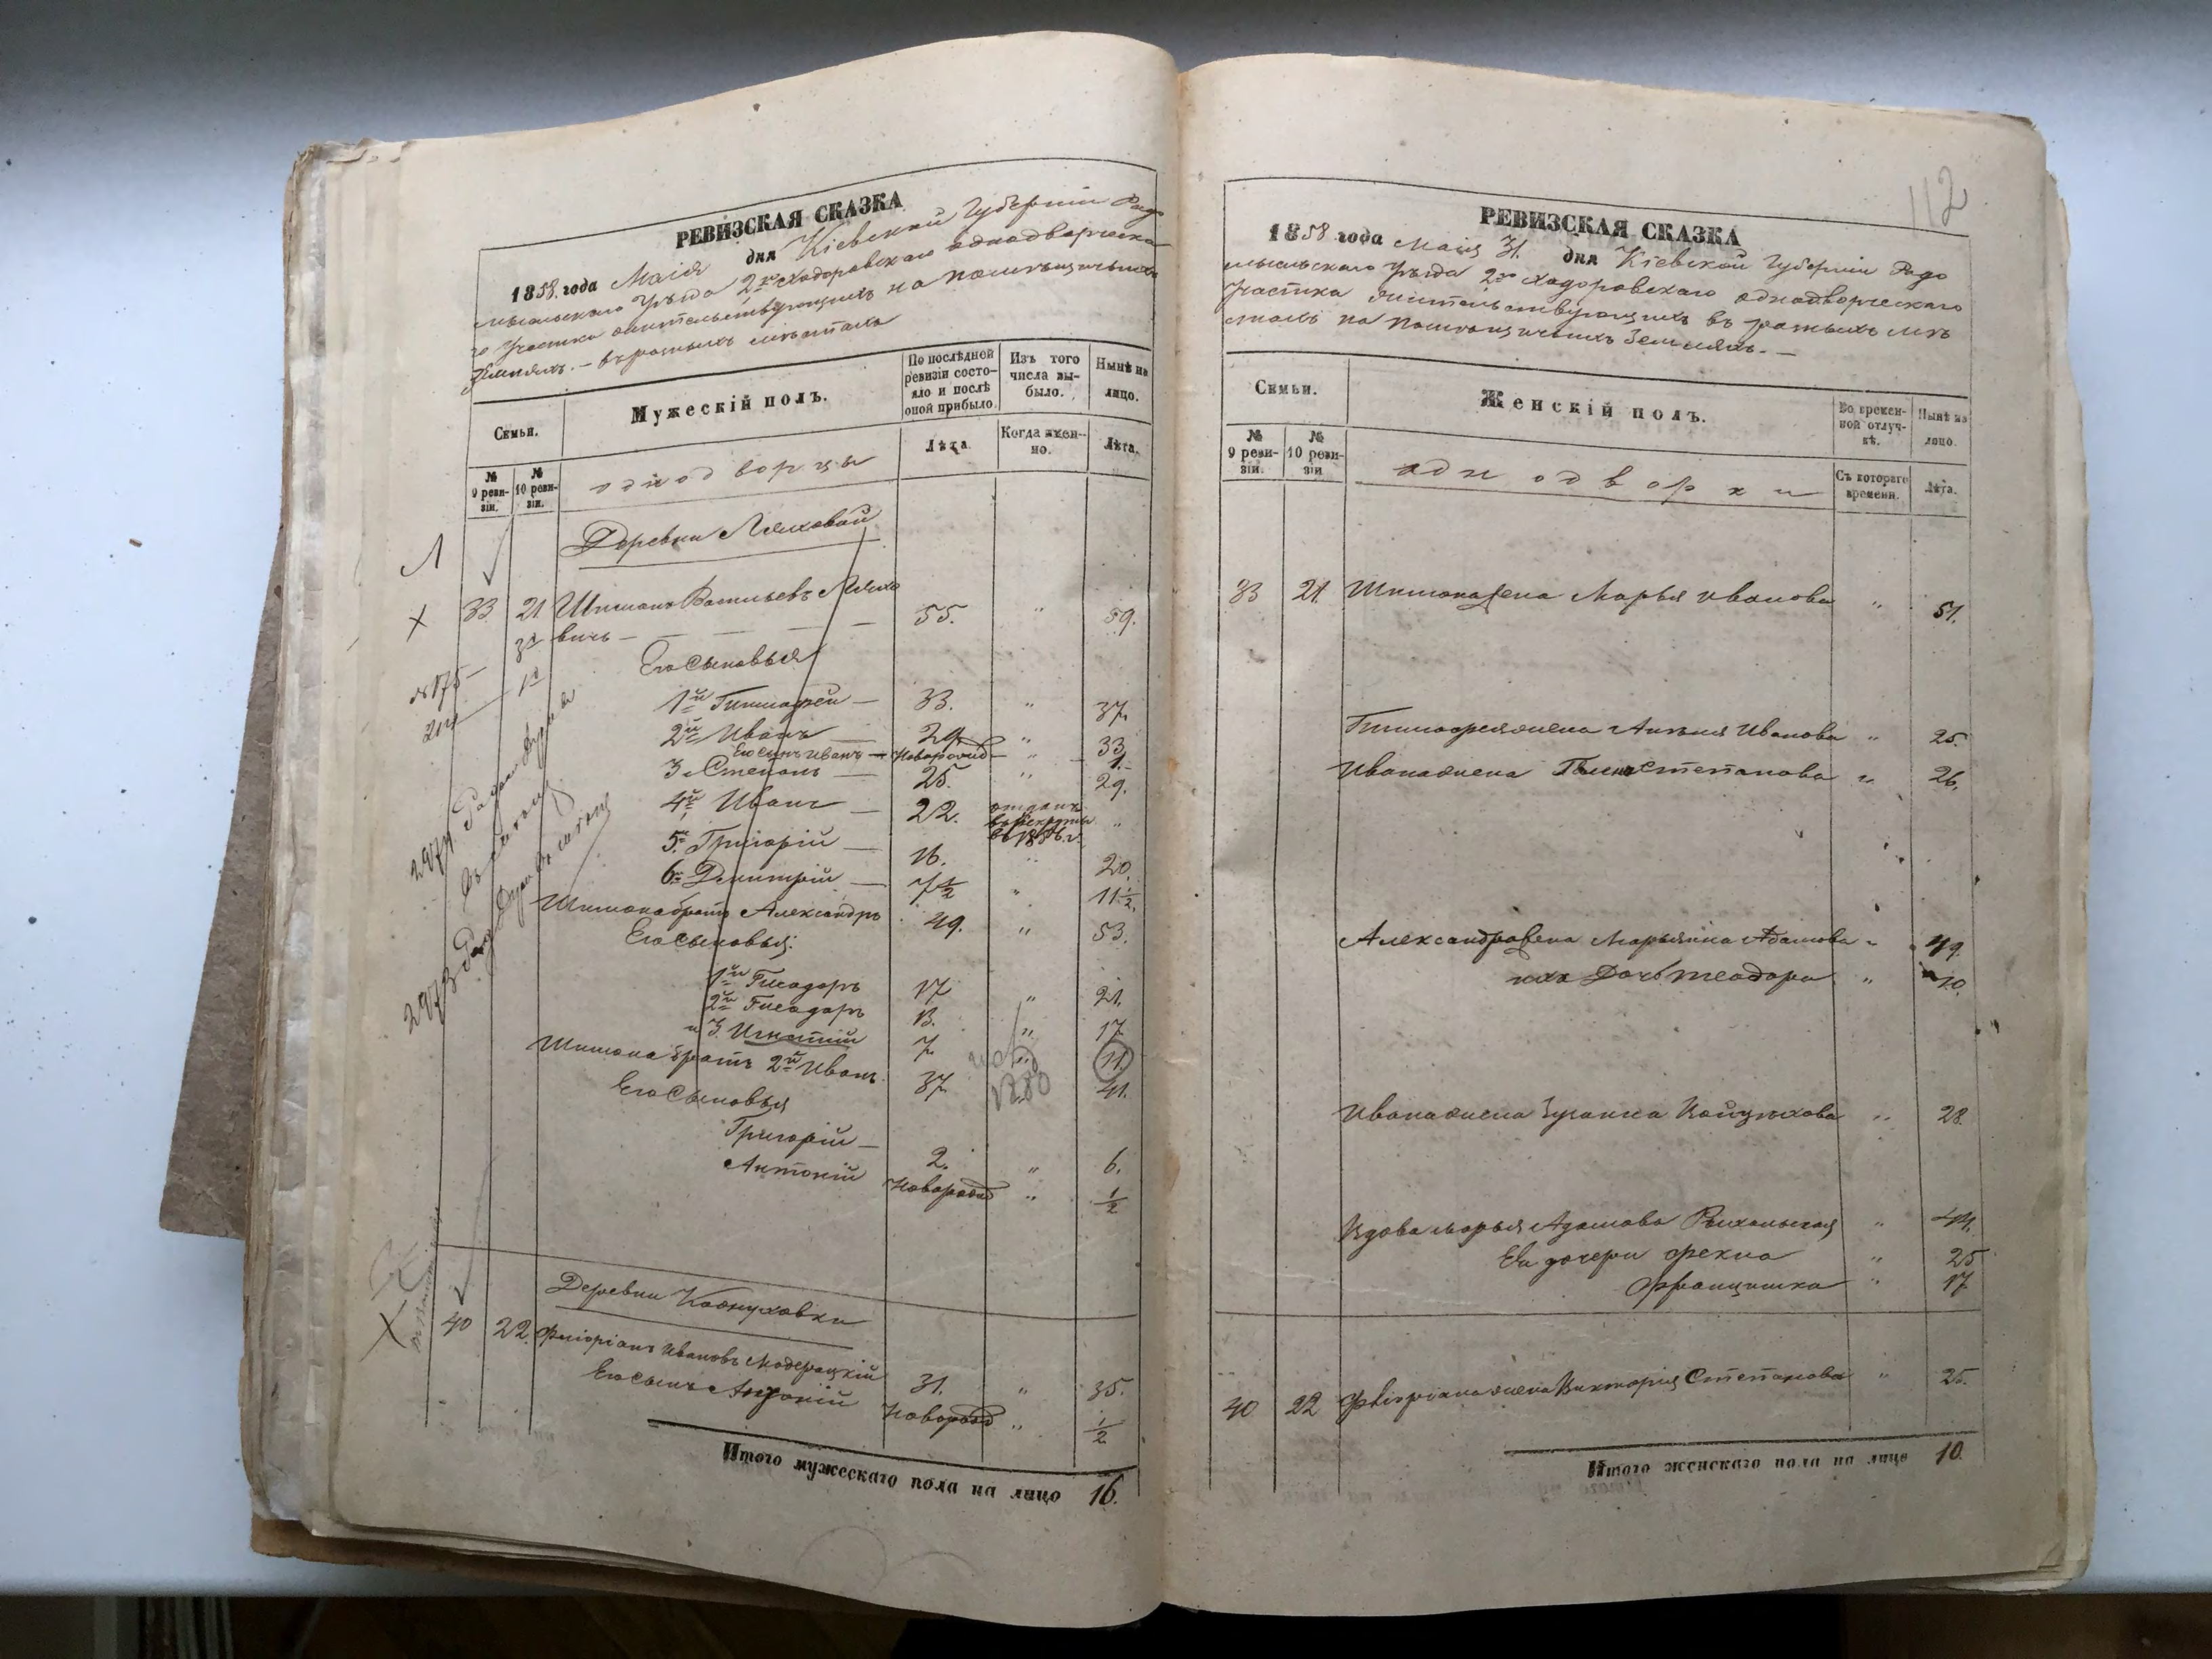 РЕВИЗСКАЯ СКАЗКА
1858. года Маія дня Кіевской Губерніи Радо
мысльскаго Уѣзда 2го Ходоровскаго однодворческа
го Участка жительствующихъ на помѣщичьихъ
Земляхъ. – въ разныхъ мѣстахъ
Семьи.
Мужескій полъ.
По послѣдней ревизіи состояло и послѣ оной прибыло.
Изъ того числа выбыло.
Нынѣ на лицо.
№ 9 ревизіи.
№ 10 ревизіи.
однодворцы
Лѣта.
Когда именно.
Лѣта.
Деревни Ляховой
33 21 Шимонъ Васильевъ Ляхо
вичь — 55. " 59.
Его сыновья
1й Тимофей — 33. " 37.
2й Иванъ — 29. " 33
Его сынъ Иванъ — новорожд — " 1.
3 Степанъ — 25. " 29.
4й Иванъ — 22. отданъ въ рекруты въ 1856. г. "
5й Григорій — 16. " 20.
6й Дмитрій — 7 1/2 " 11 1/2.
Шимона братъ Александръ 49. " 53.
Его сыновья:
1й Теодоръ 17 " 21.
2й Теодоръ 13. " 17
и 3. Игнатій 7. " 11.
Шимона братъ 2й Иванъ 37. " 41.
Его сыновья
Григорій — 2. " 6.
Антоній новорожд " 1/2
Деревни
40 22. Флоріанъ Ивановъ Модерацкій 31. " 35.
Его сынъ Антоній новорожд " 1/2
Итого мужескаго пола на лицо 16.
112
РЕВИЗСКАЯ СКАЗКА
1858 года Маія 31. дня Кіевской Губерніи Радо
мысльскаго Уѣзда 2го Ходоровскаго однодворческаго
Участка жительствующихъ въ разныхъ мѣ
стахъ на помѣщичьихъ Земляхъ. —
Семьи.
Женскій полъ.
Во временной отлучкѣ.
Нынѣ на лицо.
№ 9 ревизіи.
№ 10 ревизіи
однодворки
Съ котораго времени.
Лѣта.
33 21. Шимона жена Марья Иванова " 51.
Тимофея жена Иванова " 25.
Ивана жена Степанова " 26.
Александра жена Марьяна Адамова " 49.
ихъ дочь Теодора " 10.
Ивана жена " 28.
Вдова Марья Адамова " 44.
Ея дочери Фекла " 25
Францишка " 17
40 22 Флоріана жена Викторія Степанова " 25.
Итого женскаго пола на лицо 10.